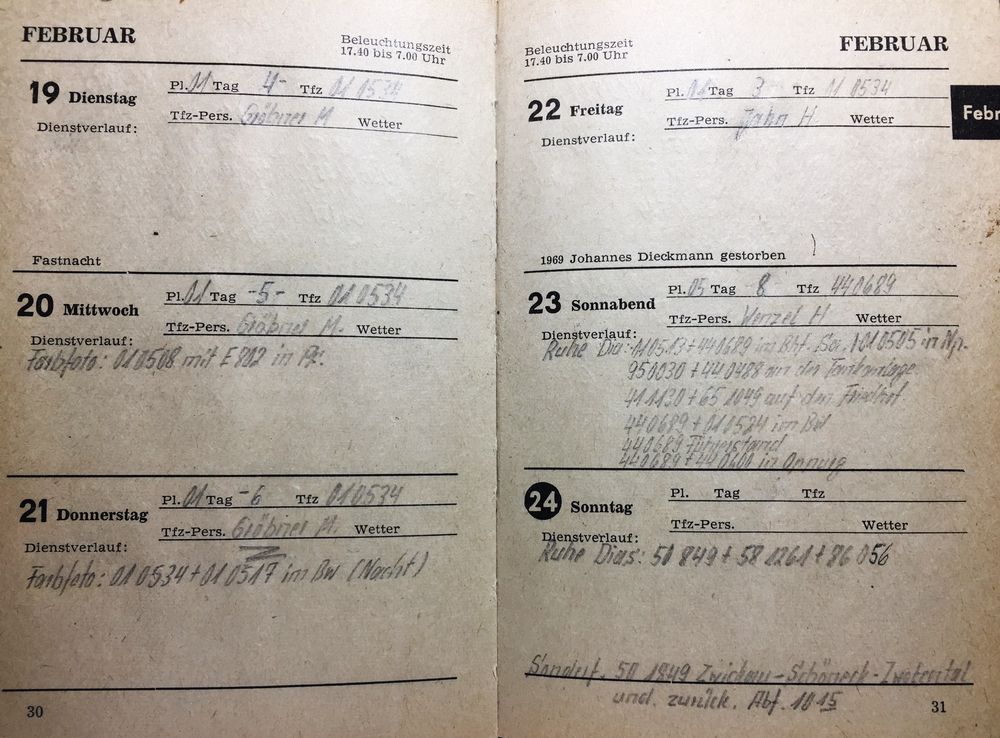 FEBRUAR
Beleuchtungszeit
17.40 bis 7.00 Uhr
19 Dienstag
Pl. 01 Tag 4- Tfz 01 0534
Tfz-Pers. Gräbner M Wetter
Dienstverlauf:
Fastnacht
20 Mittwoch
Pl. 01 Tag -5- Tfz 01 0534
Tfz-Pers. Gräbner M. Wetter
Dienstverlauf:
Farbfoto: 01 0508 mit E 802 in
21 Donnerstag
Pl. 01 Tag -6 Tfz 01 0534
Tfz-Pers. Gräbner M. Wetter
Dienstverlauf:
Farbfoto: 01 0534 + 01 0517 im Bw (Nacht)
30
Beleuchtungszeit
17.40 bis 7.00 Uhr
FEBRUAR
Febr
22 Freitag
Pl. 01 Tag 3 Tfz 01 0534
Tfz-Pers. Jahn H. Wetter
Dienstverlauf:
1969 Johannes Dieckmann gestorben
23 Sonnabend
Pl. 05 Tag 8 Tfz 44 0689
Tfz-Pers. Wenzel H Wetter
Dienstverlauf:
Ruhe Dia: 01 0513 + 44 0689 im Bf. 01 0505 in
95 0030 + 44 0488 an der Tankanlage
41 1130 + 65 1049 auf den Friedhof
44 0689 + 01 0524 im Bw
44 0689 Führerstand
44 0689 + 44 0600 in Oppurg
24 Sonntag
Pl. Tag Tfz
Tfz-Pers. Wetter
Dienstverlauf:
Ruhe Dias: 50 849 + 58 1261 + 86 056
Sonderf. 50 1849 Zwickau-Schöneck-Zwotental
und. zurück. Abf. 10 15
31